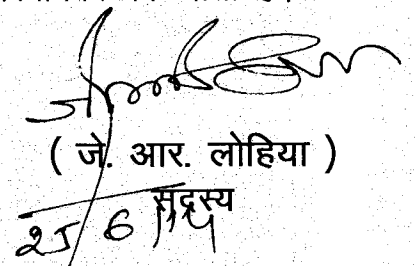 ( जे. आर. लोहिया )
सदस्य
25/6/14